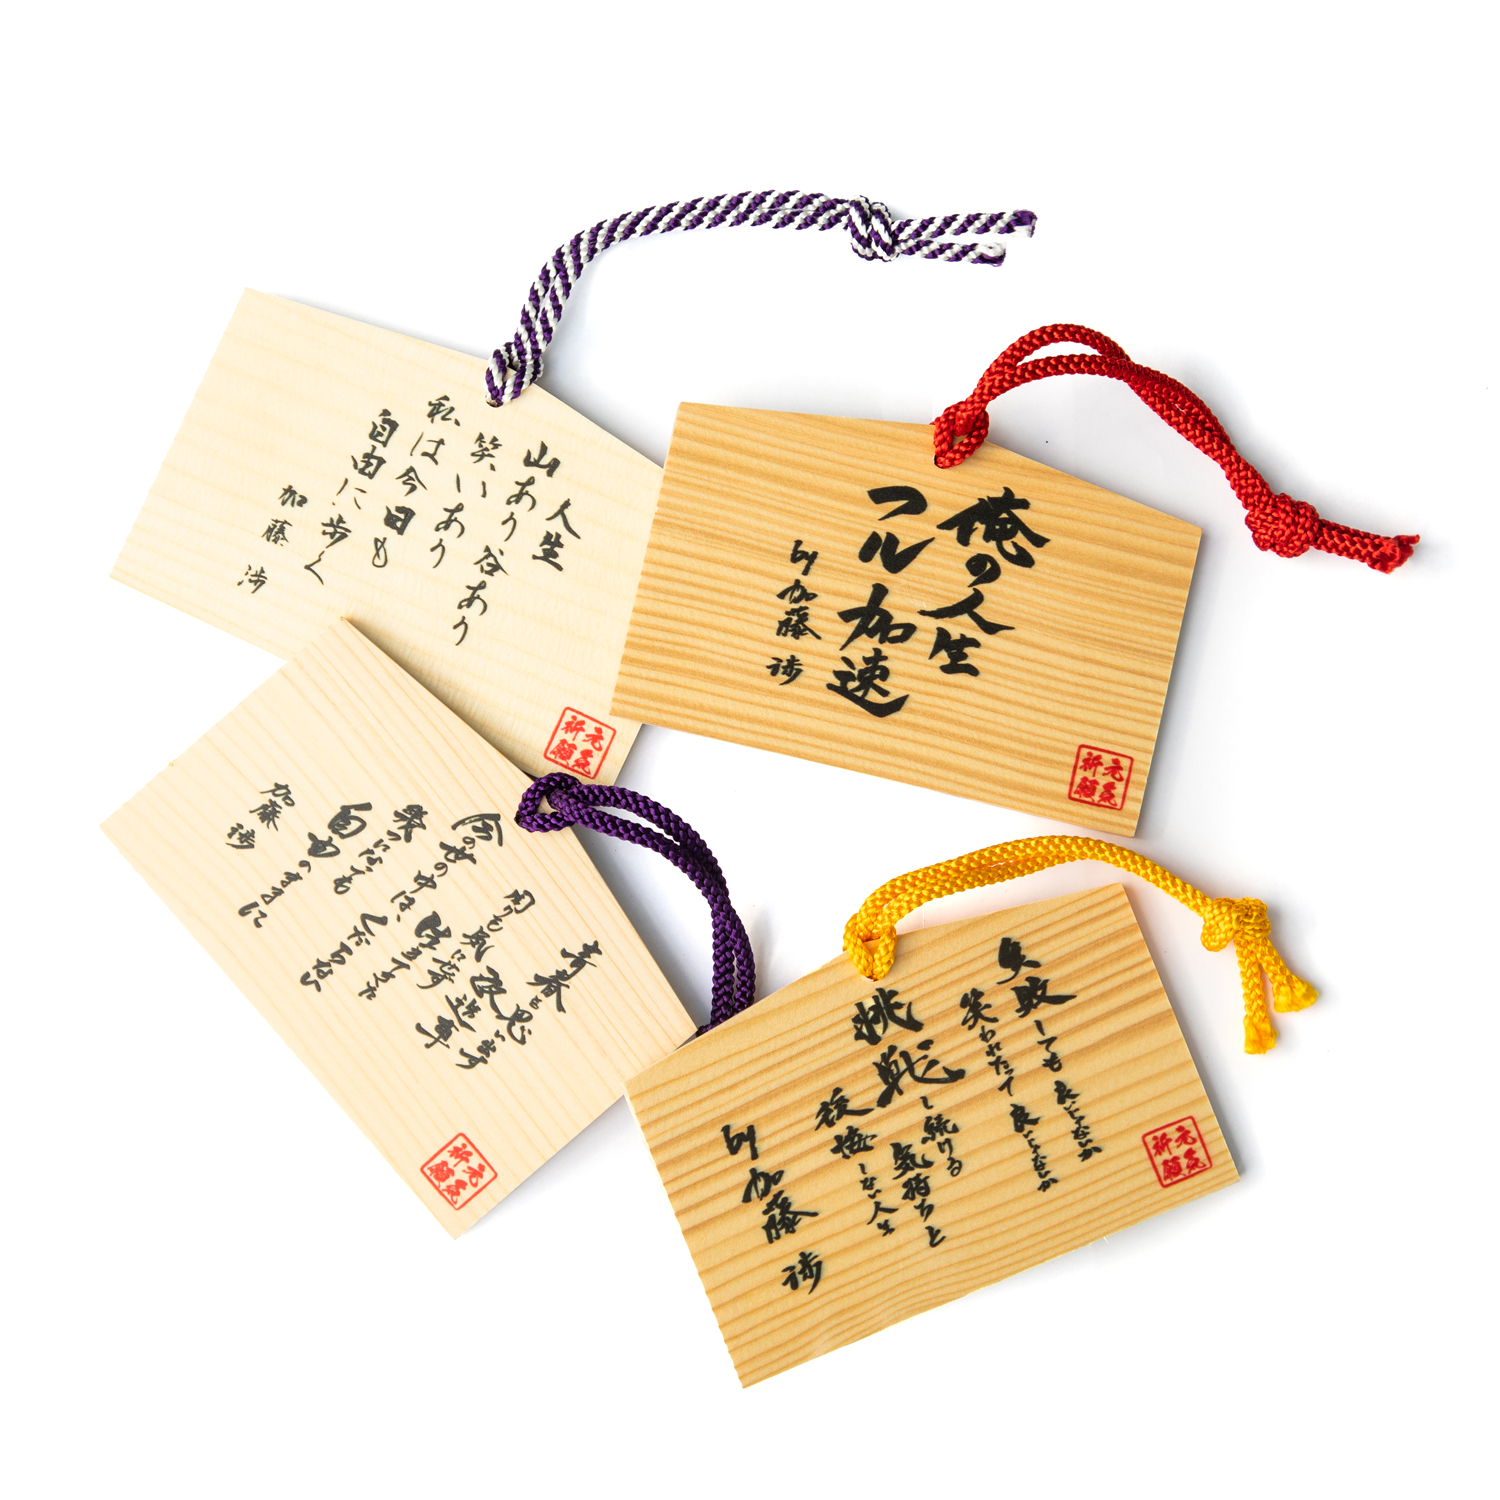 人生
山あり谷あり
笑いあり
私は今日も
自由に歩く
加藤 渉
元気
祈願
俺の人生
フル加速
by 加藤 渉
元気
祈願
青春と思います
周りも気にせず
改造車
今の世の中は、
くだらない
自由のままに
加藤 渉
元気
祈願
失敗しても良いじゃないか
笑われたって良いじゃないか
挑戦し続ける
気持ちと
後悔しない人生
by 加藤 渉
元気
祈願